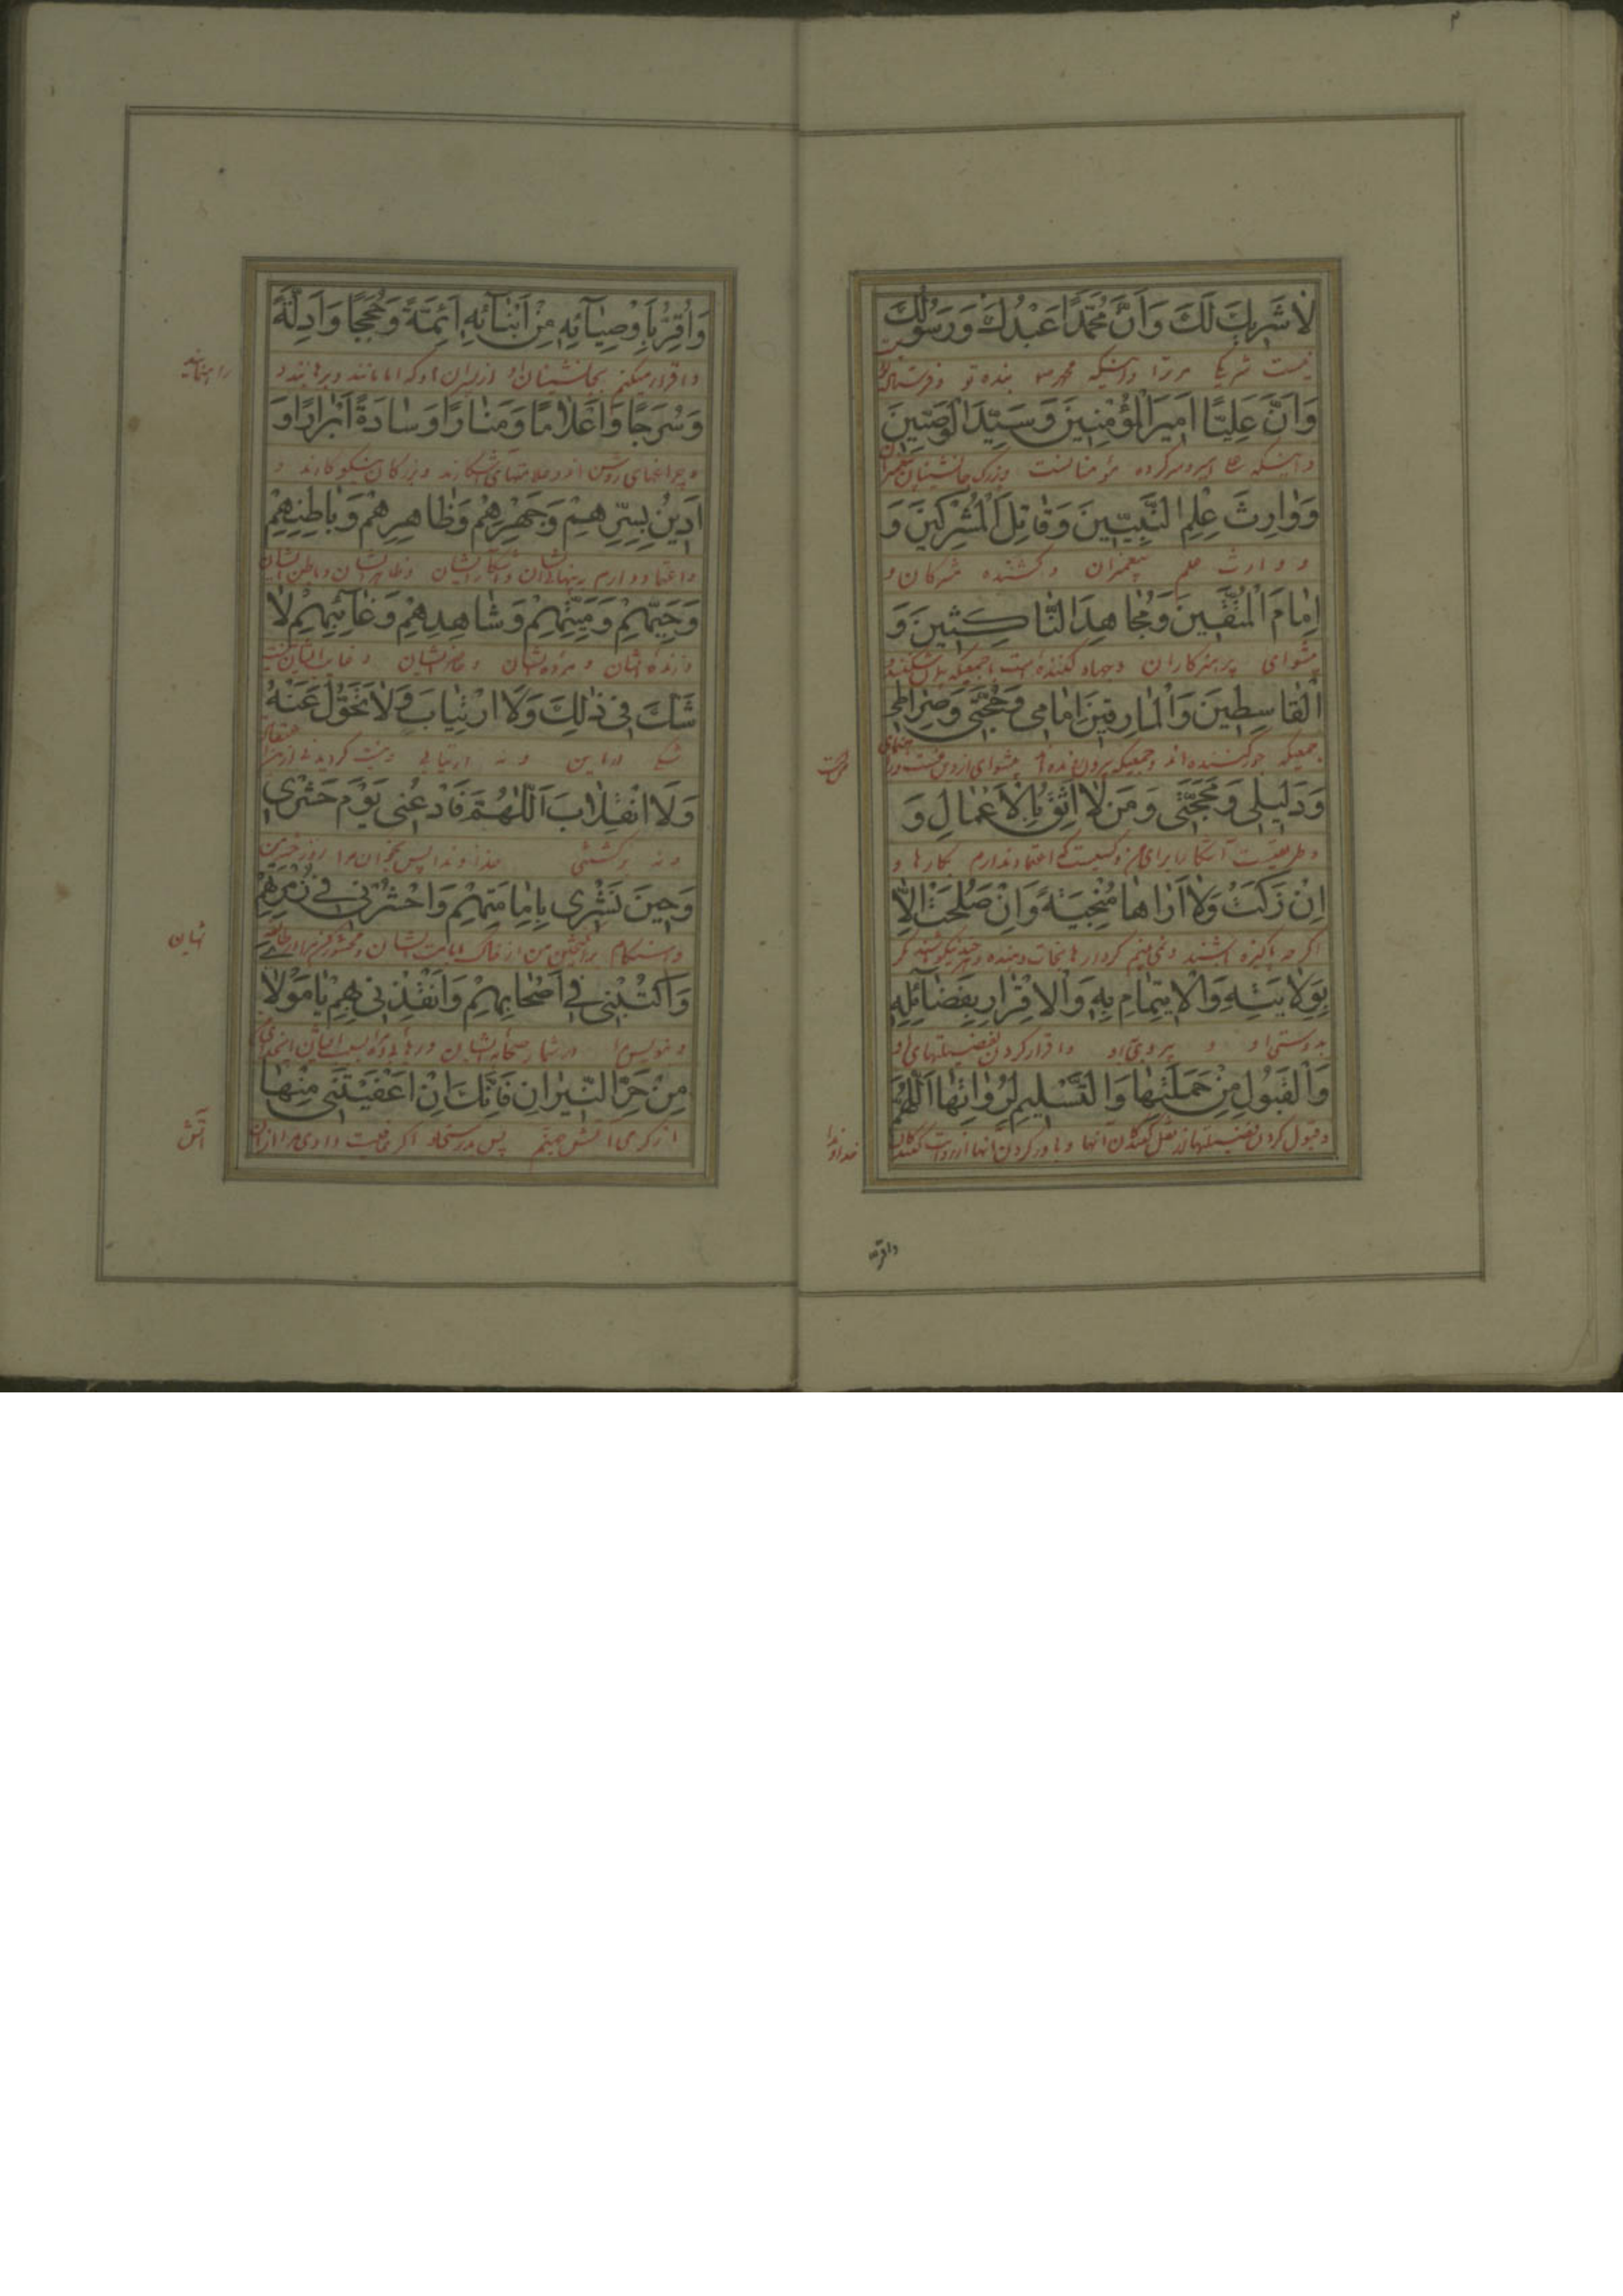 ۲
لَا شَرِيكَ لَكَ وَاَنَّ مُحَمَّدًا عَبْدُكَ وَرَسُولُكَ
نیست شریکی مرترا واینکه محمد ص بنده تو وفرستاده
وَاَنَّ عَلِيًّا اَمِيرَ الْمُؤْمِنِينَ وَسَيِّدَ الْوَصِيّينَ
واینکه علی امیر وسرکرده مؤمنانست وبزرک جانشینان پیغمبران
وَوٰارِثَ عِلْمِ النَّبِيّينَ وَقٰاتِلَ الْمُشْرِكينَ وَ
و وارث علم پیغمبران و کشنده مشرکان و
اِمٰامَ الْمُتَّقينَ وَمُجٰاهِدَ النّٰاكِثينَ وَ
پیشوای پرهیزکاران وجهاد کننده است باجمعیکه
الْقٰاسِطينَ وَالْمٰارِقينَ اِمٰامى وَحُجَّتى وَصِرٰاطى
جمعیکه جور کننده اند وجمعیکه پیشوای
وَدَليلى وَمَحَجَّتى وَمَنْ لٰا اَثِقُ بِالْاَعْمٰالِ وَ
وطریقه اعتماد ندارم بکارها و
اِنْ زَكَتْ وَلٰا اَرٰاهٰا مُنْجِيَةً وَاِنْ صَلُحَتْ اِلّٰا
اکرچه پاکیزه باشند ونمی بینم کردارها نجات دهنده مکر
بِوَلٰايَتِهِ وَالْايتِمٰامِ بِهِ وَالْاِقْرٰارِ بِفَضٰائِلِهِ
بدوستی او و پیروی او واقرار کردن بفضیلتهای او
وَالْقَبُولِ مِنْ حَمَلَتِهٰا وَالتَّسْليمِ لِرُوٰاتِهٰا اَللّٰهُمَّ
وقبول کردن فضیلتها از نقل کنندکان انها وباور کردن انها از
خداوندا
واقر
وَاُقِرُّ بِاَوْصِيٰآئِهِ مِنْ اَبْنٰآئِهِ اَئِمَّةً وَحُجَجًا وَاَدِلَّةً
واقرار میکنم بجانشینان او از پسران او که امامانند وبرهانند و
وَسُرُجًا وَاَعْلٰامًا وَمَنٰارًا وَسٰادَةً اَبْرٰارًا وَ
وچراغهای روشن وعلامتهای آشکارند وبزرکان نیکوکارند و
اَدينُ بِسِرِّهِمْ وَجَهْرِهِمْ وَظٰاهِرِهِمْ وَبٰاطِنِهِمْ
واعتقاد دارم وظاهرشان وباطن ایشان
وَحَيِّهِمْ وَمَيِّتِهِمْ وَشٰاهِدِهِمْ وَغٰآئِبِهِمْ لٰا
وزنده شان و مرده شان وحاضرشان و غایب ایشان نیست
شَكَّ فى ذٰلِكَ وَلَا ارْتِيٰابَ وَلٰا تَحَوُّلَ عَنْهُ
شکی در این و نه ارتیابی
وَلَا انْقِلٰابَ اَللّٰهُمَّ فَادْعُنى يَوْمَ حَشْرى
ونه برکشتنی خداوندا پس بخوان مرا روز حشر من
وَحينَ نَشْرى بِاِمٰامَتِهِمْ وَاحْشُرْنى فى زُمْرَتِهِمْ
وهنکام برانکیختن من از خاک بامامت ایشان ومحشور کن مرا در
وَاكْتُبْنى فى اَصْحٰابِهِمْ وَاَنْقِذْنى بِهِمْ يٰا مَوْلٰاىَ
وبنویس مرا در شمار صحابه ایشان
مِنْ حَرِّ النّيرٰانِ فَاِنَّكَ اِنْ اَعْفَيْتَنى مِنْهٰا
از کرمی آتش جهنم پس بدرستیکه تو اکر عافیت دادی مرا از
آتش